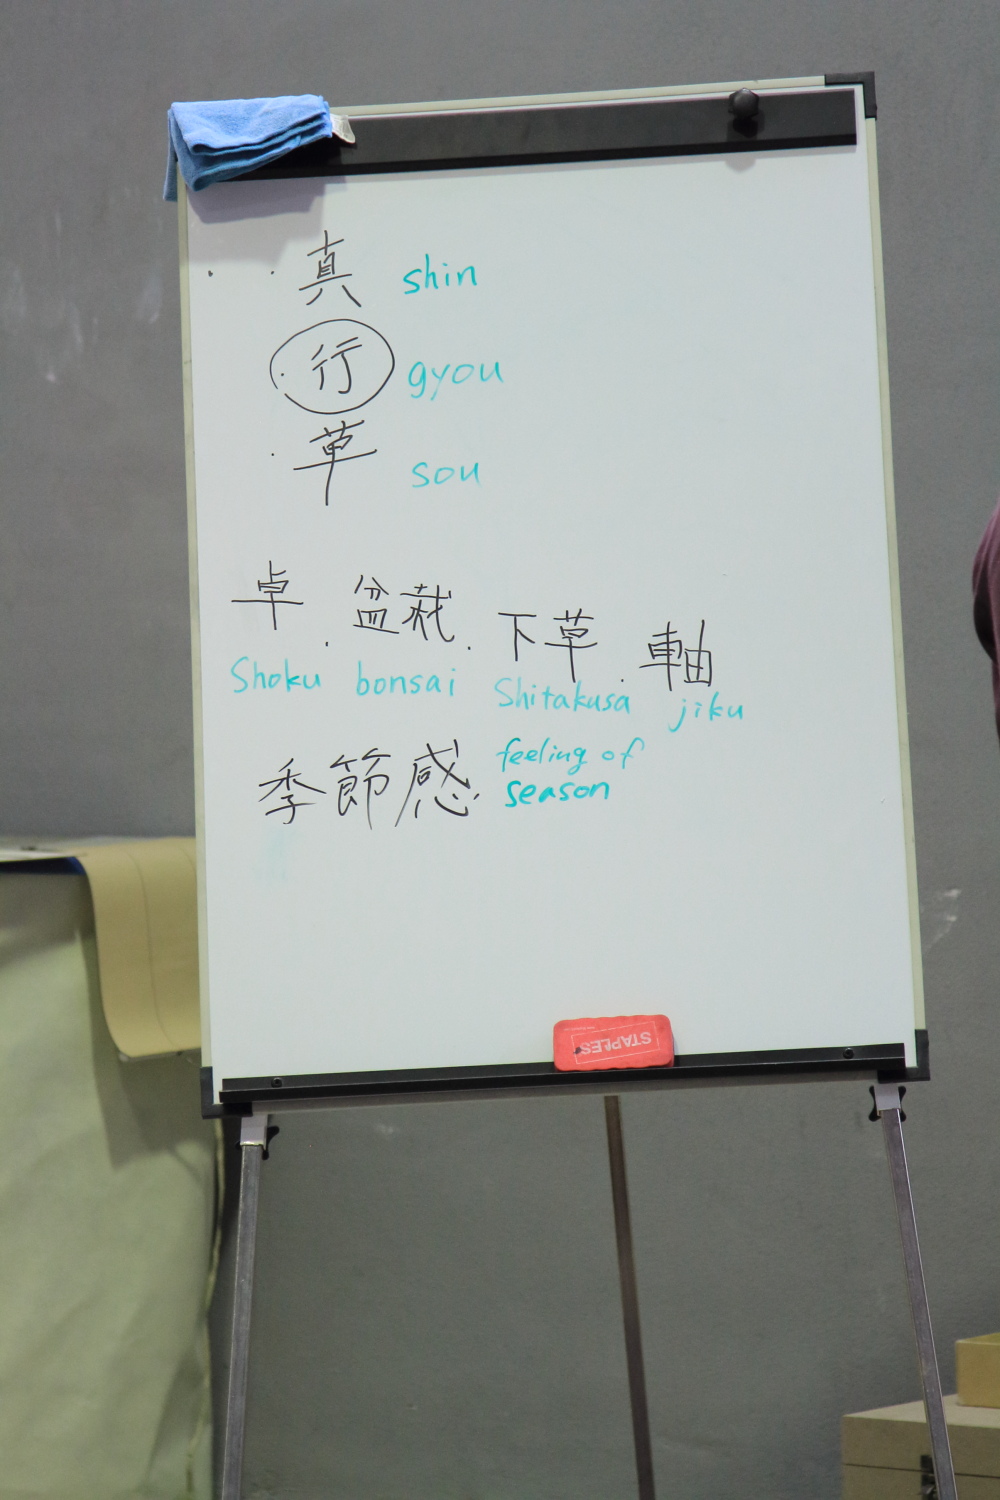 真 shin
行 gyou
草 sou
卓 . 盆栽 . 下草 . 軸
Shoku bonsai Shitakusa jiku
季節感. feeling of
season
STAPLES